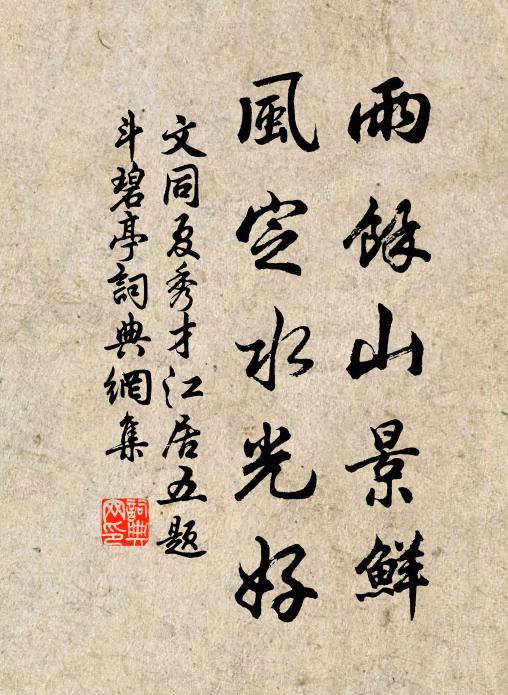 雨餘山景鮮
風定水光好
文同夏秀才江居五题
斗碧亭詞典網集
詞典網印